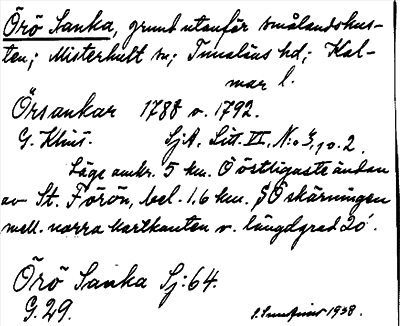 Örö Sanka, grund utanför smålandskus-
ten; Misterhult sn; Tunaläns hd; Kal-
mar l.
Örsankar 1788 o. 1792.
G. Klint. SjA, Litt. VI, N:o 3, 10.2.
Läge omkr. 5 km. O östligaste ändan
av St. Förön, bel. 1.6 km. SO skärningen
mell. norra kartkanten o. längdgrad 20'.
Örö Sanka Sj: 64.
G. 29.
1938.